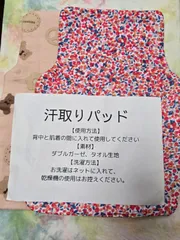 汗取りパッド
【使用方法】
背中と肌着の間に入れて使用してください
【素材】
ダブルガーゼ、タオル生地
【洗濯方法】
お洗濯はネットに入れて、
乾燥機の使用はお控えください。